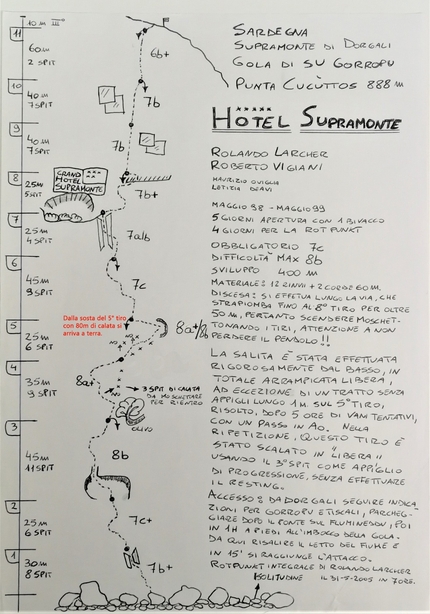 11
10 m III
60m
2 SPIT
6b+
10
40 m
7 SPIT
7b
9
40 m
7 SPIT
7b
8
25m
5 SPIT
GRAND
HOTEL
SUPRAMONTE
7b+
7
25 m
4 SPIT
7a/b
6
45 m
9 SPIT
7c
Dalla sosta del 5° tiro
con 80m di calata si
arriva a terra.
5
25 m
6 SPIT
8a+/8b
NO
NO
4
35 m
9 SPIT
8a+
3 SPIT DI CALATA
DA MOSCHETTARE
PER RIENTRO
OLIVO
3
45 m
11 SPIT
8b
2
25 m
6 SPIT
7c+
1
30 m
8 SPIT
7b+
SARDEGNA
SUPRAMONTE DI DORGALI
GOLA DI SU GORROPU
PUNTA CUCÙTTOS 888 m
HOTEL SUPRAMONTE
ROLANDO LARCHER
ROBERTO VIGIANI
MAURIZIO OVIGLIA
LETIZIA
MAGGIO 98 - MAGGIO 99
5 GIORNI APERTURA CON 1 BIVACCO
4 GIORNI PER LA ROTPUNKT
OBBLIGATORIO 7c
DIFFICOLTÀ MAX 8b
SVILUPPO 400 m
MATERIALE: 12 RINVII + 2 CORDE 60 m.
DISCESA: SI EFFETUA LUNGO LA VIA, CHE
STRAPIOMBA FINO AL 8° TIRO PER OLTRE
50 m, PERTANTO SCENDERE MOSCHET-
TONANDO I TIRI, ATTENZIONE A NON
PERDERE IL PENDOLO!!
LA SALITA È STATA EFFETTUATA
RIGOROSAMENTE DAL BASSO, IN
TOTALE ARRAMPICATA LIBERA,
AD ECCEZIONE DI UN TRATTO SENZA
APPIGLI LUNGO 1 M. SUL 5° TIRO,
RISOLTO, DOPO 5 ORE DI VANI TENTATIVI,
CON UN PASSO IN A0. NELLA
RIPETIZIONE, QUESTO TIRO È
STATO SCALATO IN "LIBERA"
USANDO IL 3° SPIT COME APPIGLIO
DI PROGRESSIONE, SENZA EFFETTUARE
IL RESTING.
ACCESSO: DA DORGALI SEGUIRE INDICA
ZIONI PER GORROPU E TISCALI, PARCHEG-
GIARE DOPO IL PONTE SUL FLUMINEDDU, POI
IN 1H A PIEDI ALL'IMBOCCO DELLA GOLA.
DA QUI RISALIRE IL LETTO DEL FIUME E
IN 15' SI RAGGIUNGE L'ATTACCO.
ROTPUNKT INTEGRALE DI ROLANDO LARCHER
IL 31-5-2005 IN 7 ORE.
SOLITUDINE